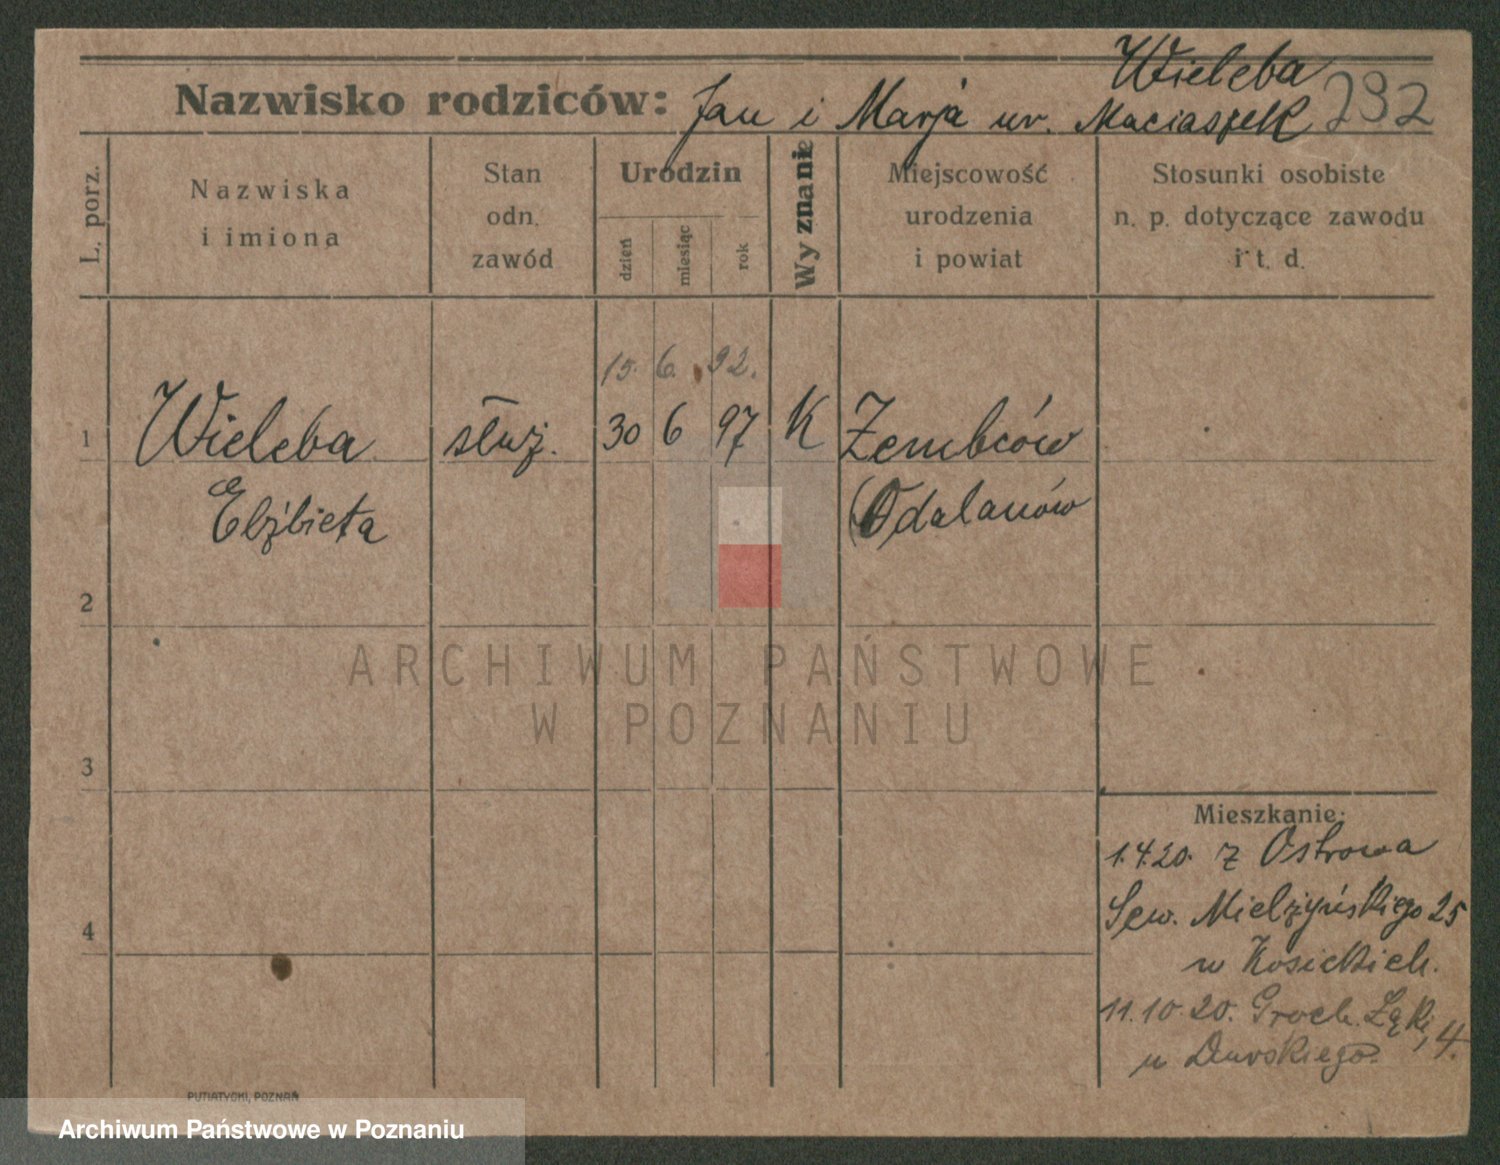 Wieleba
Nazwisko rodziców: Jan i Marja ur. Maciaszek 292
L. porz.
Nazwiska
i imiona
Stan
odn.
zawód
Urodzin
dzień
miesiąc
rok
Wyznanie
Miejscowość
urodzenia
i powiat
Stosunki osobiste
n. p. dotyczące zawodu
i t. d.
15. 6. 92.
1 Wieleba służ. 30 6 97 K Zembców
Elżbieta (Odalanów
2
ARCHIWUM PAŃSTWOWE
W POZNANIU
3
Mieszkanie:
1.4.20. z Ostrowa
Sew. Mielżyńskiego 25
4
u Kosickich.
11.10.20. Groch. Łąki, 4.
u Durskiego.
PUTIATYCKI, POZNAŃ
Archiwum Państwowe w Poznaniu